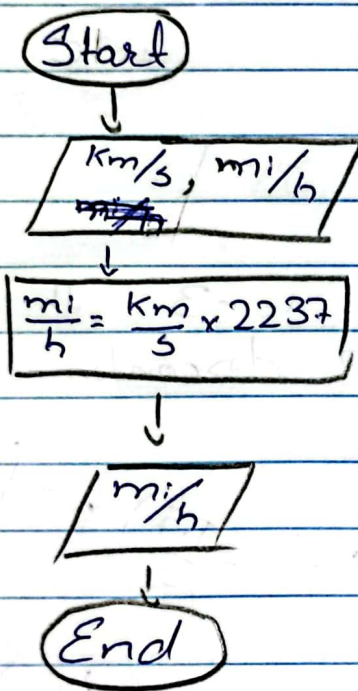 Start
km/s, mi/h
mi/h = km/s × 2237
mi/h
End